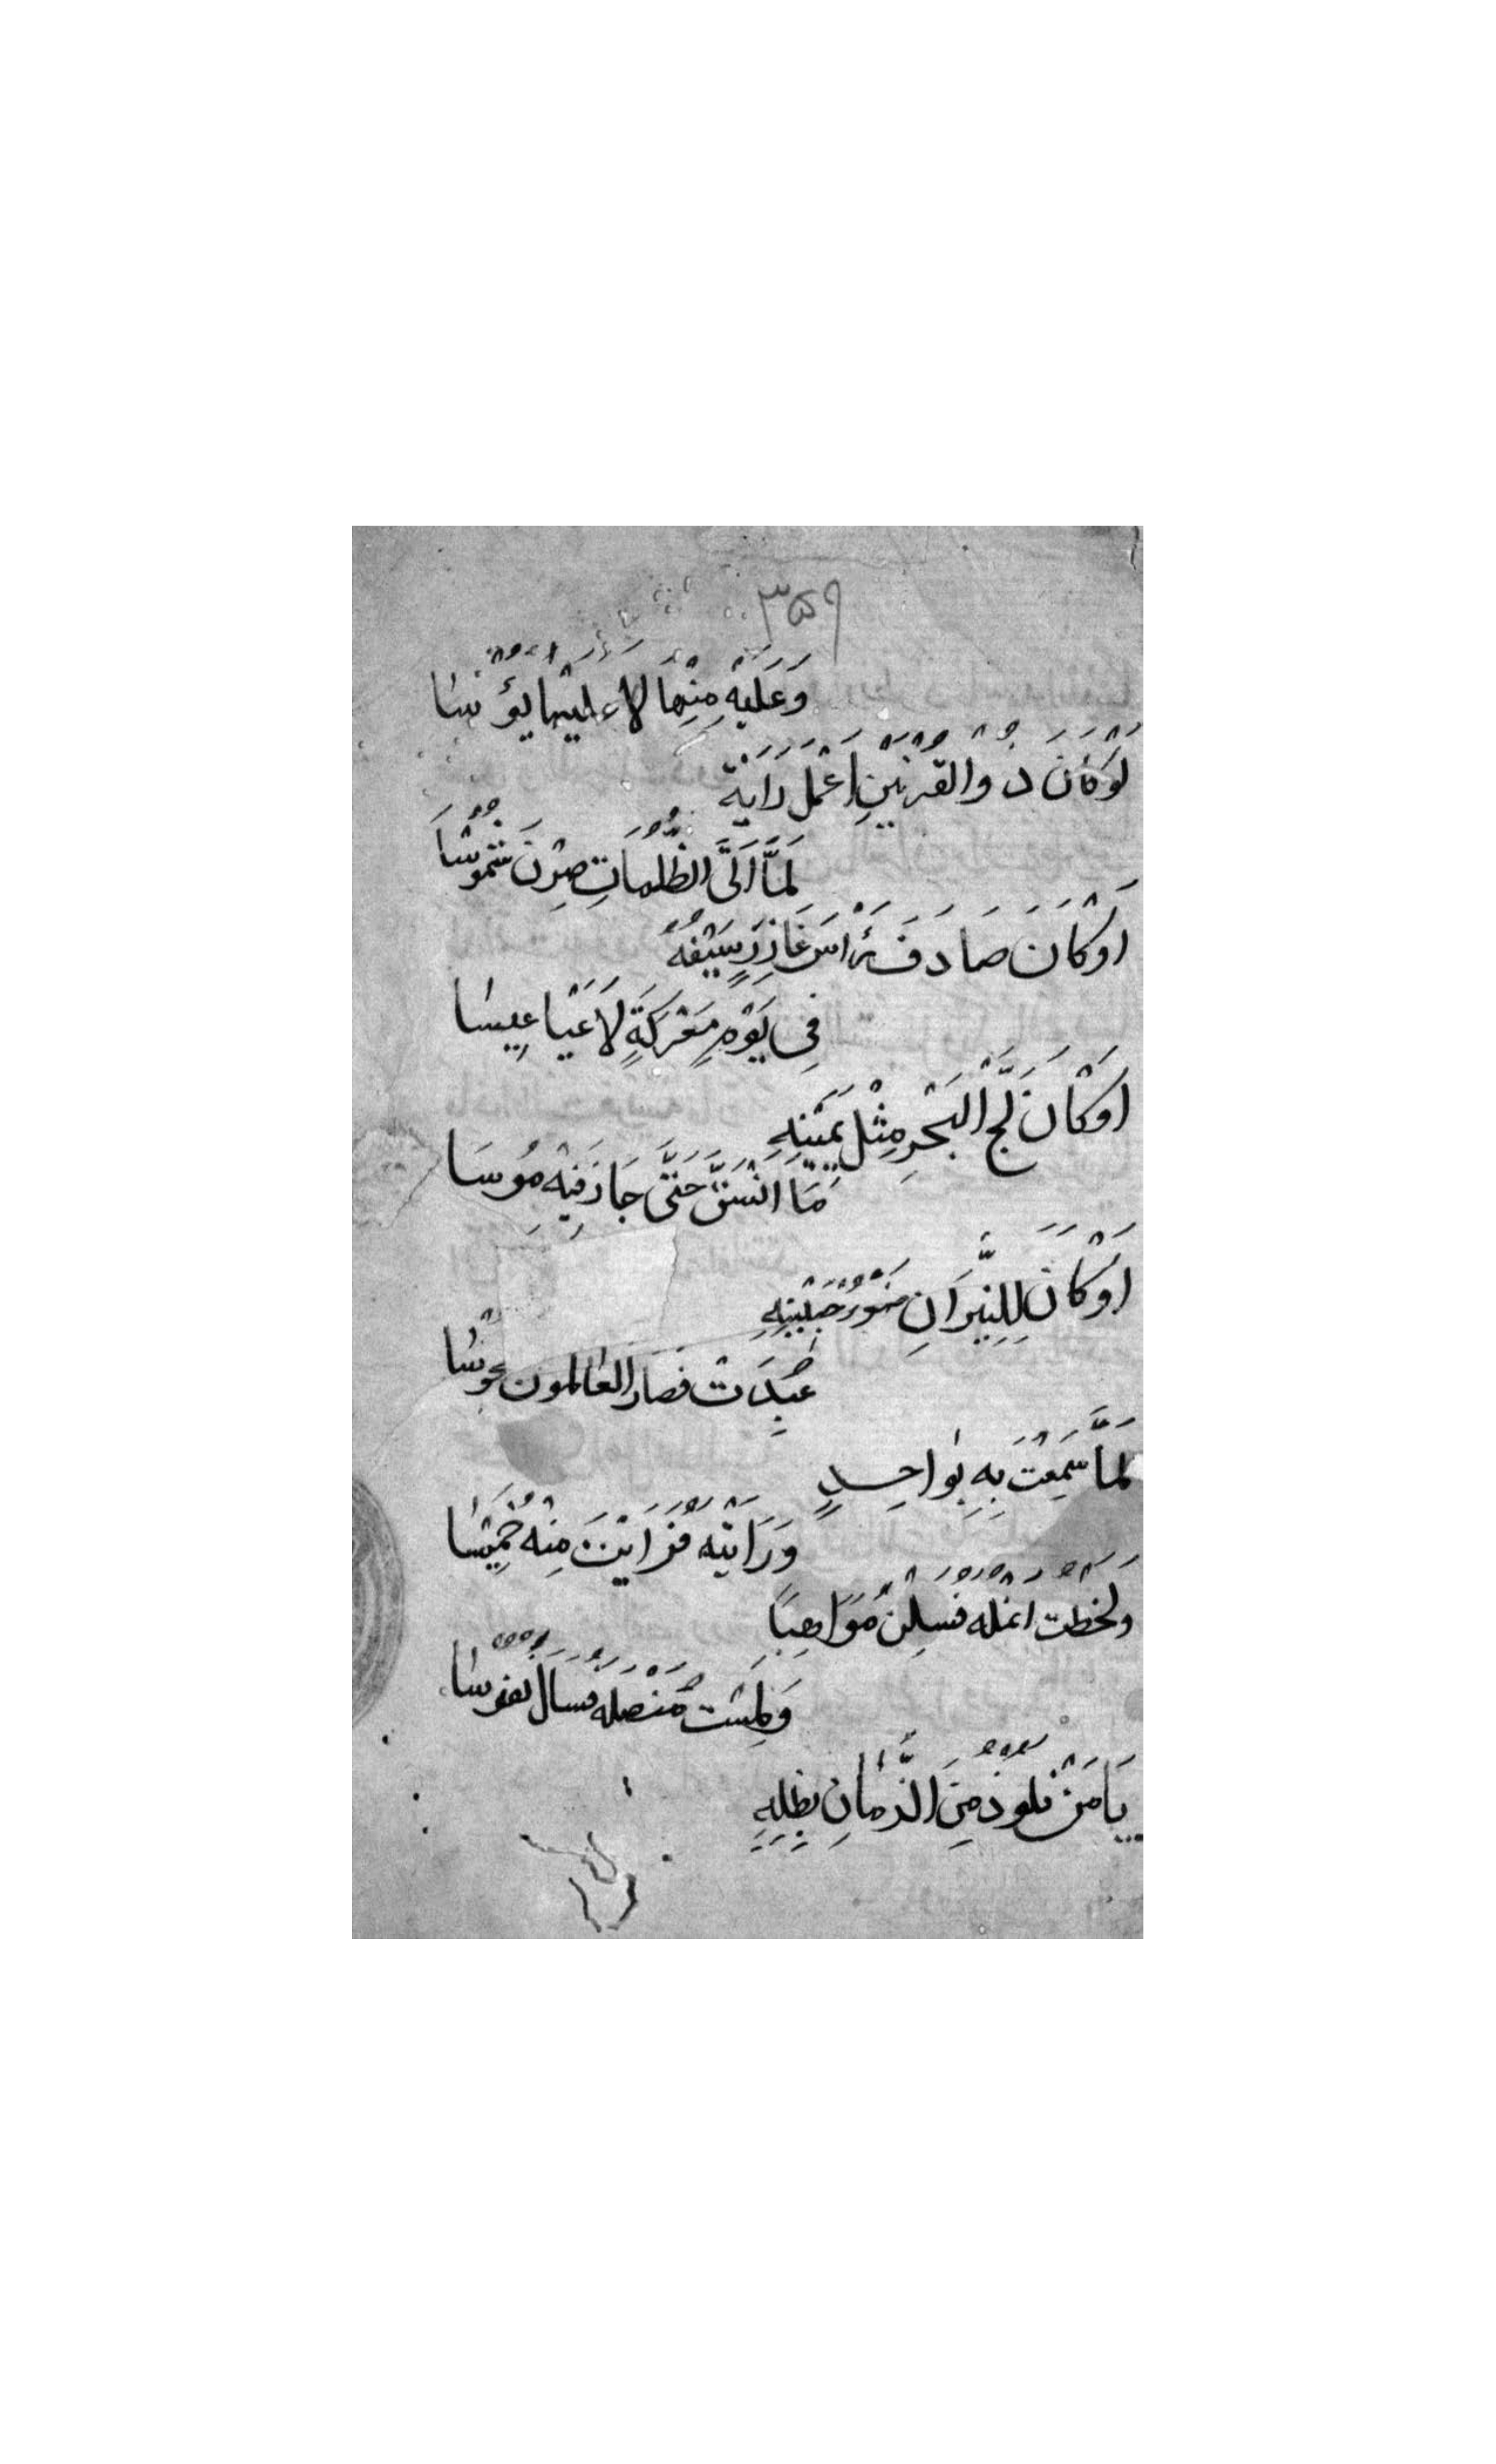 ۳۵۹
وَعَلَيْهِ مِنْهَا لَا عَلَيْهَا يُؤْسَا
لَوْ كَانَ ذُو الْقَرْنَيْنِ اَعْمَلَ رَايَهُ
لَمَّا اَتَى الظُّلُمَاتِ صِرْنَ شُمُوْسَا
اَوْ كَانَ صَادَفَ رَاْسَ عَازِرَ سَيْفُهُ
فِى يَوْمِ مَعْرَكَةٍ لَاَعْيَا عِيسٰا
اَوْ كَانَ لُجُّ الْبَحْرِ مِثْلَ يَمِيْنِهِ
مَا انْشَقَّ حَتَّى جَازَ فِيْهِ مُوسَا
اَوْ كَانَ لِلنِّيْرَانِ ضَوْءُ جَبِيْنِهِ
عُبِدَتْ فصار العٰالمون مجوْسٰا
لَمَّا سَمِعْتُ بِهِ بِوٰاحِدٍ
وَرَاَيْتُهُ فَرَاَيْتُ مِنْهُ خَمِيْسٰا
ولحَظْتُ انمُلَهُ فَسِلْنَ مَوَاهِبَا
وَلَمَسْتُ مُنْصُلَهُ فَسَالَ نُفُوْسٰا
يَا مَنْ نَلُوْذُ مِنَ الزَّمٰانِ بِظِلِّهِ